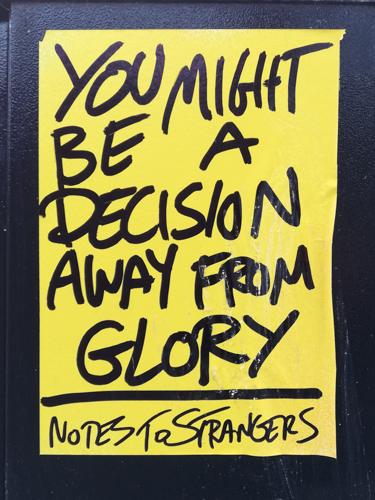 YOU MIGHT
BE A
DECISION
AWAY FROM
GLORY
NOTES TO STRANGERS